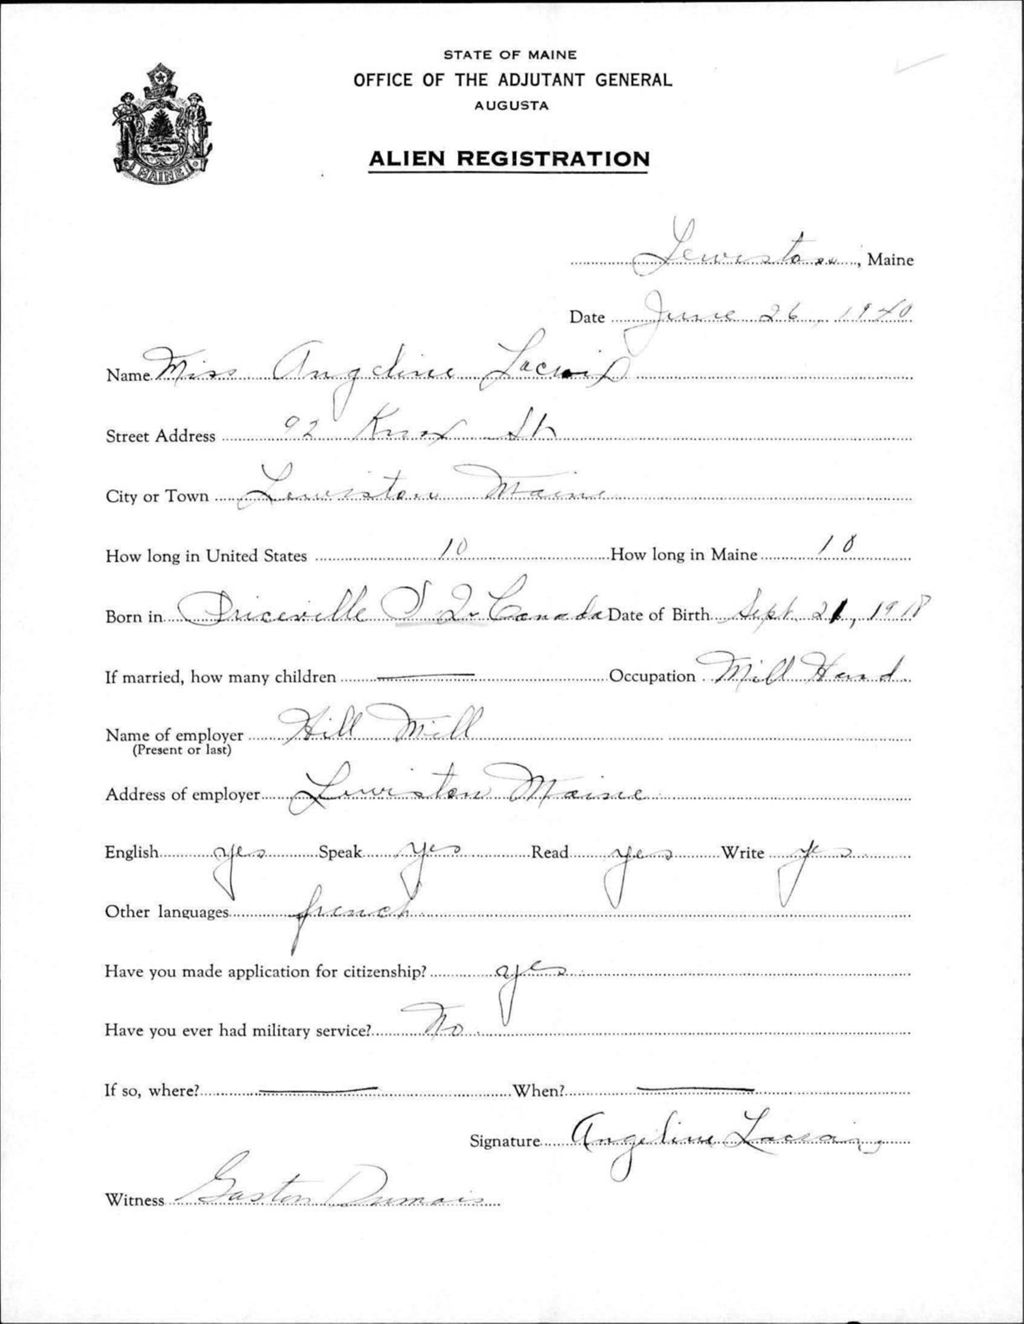 STATE OF MAINE
OFFICE OF THE ADJUTANT GENERAL
AUGUSTA
ALIEN REGISTRATION
MAINE
Lewiston, Maine
Date June 26, 1940
Name Miss Angeline Lacroix
Street Address 92 Knox St
City or Town Lewiston Maine
How long in United States 10 How long in Maine 10
Born in Priceville P Q Canada Date of Birth Sept. 21, 1918
If married, how many children Occupation Mill Hand
Name of employer Hill Mill
(Present or last)
Address of employer Lewiston Maine
English yes Speak yes Read yes Write yes
Other languages french
Have you made application for citizenship? yes
Have you ever had military service? No
If so, where? When?
Signature Angeline Lacroix
Witness Gaston Dumais